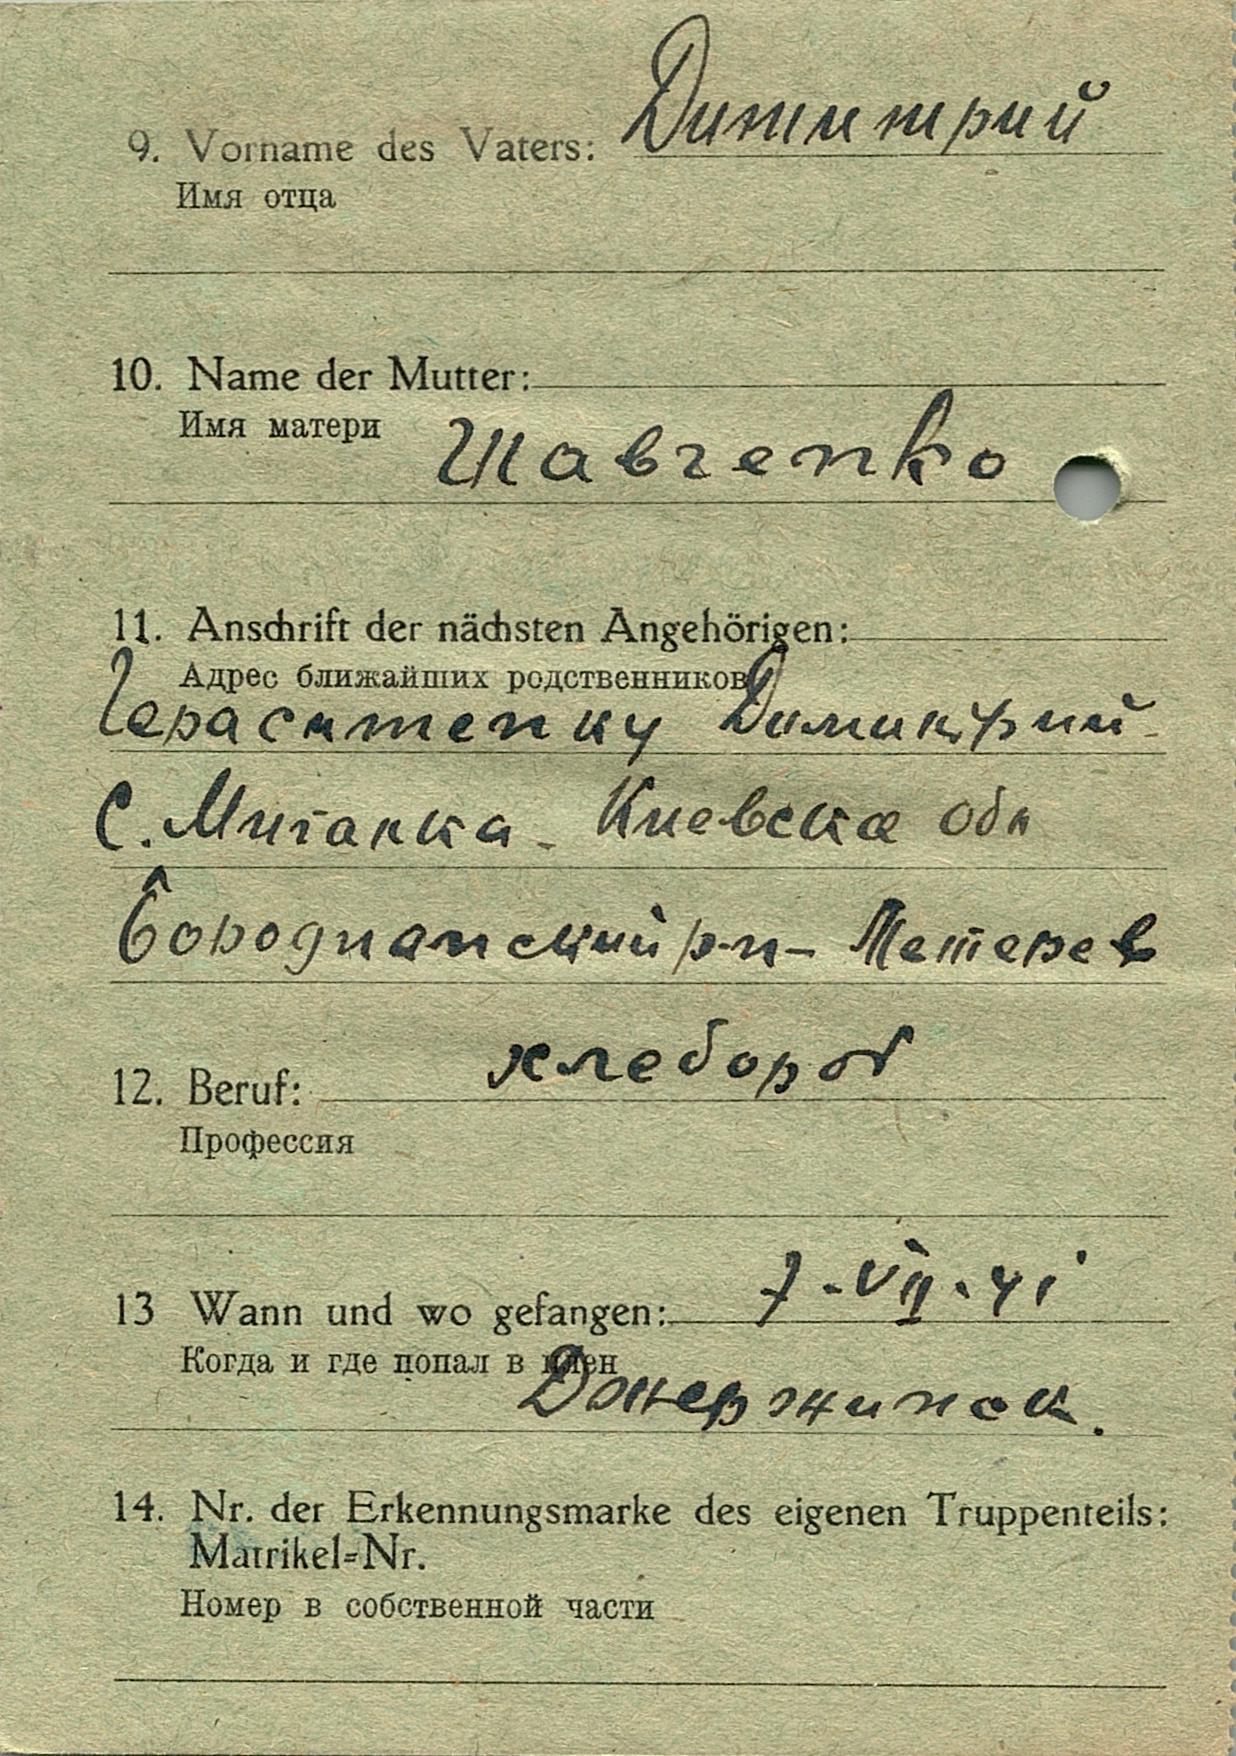 9. Vorname des Vaters: Димитрий
Имя отца
10. Name der Mutter:
Имя матери
Шавченко
11. Anschrift der nächsten Angehörigen:
Адрес ближайших родственников
Герасименку Димитрий
С. Мигалка Киевская Обл
Бородианский р-н - Тетерев
хлебороб
12. Beruf:
Профессия
13 Wann und wo gefangen: 7-VII-41
Когда и где попал в плен
Джержинск.
14. Nr. der Erkennungsmarke des eigenen Truppenteils:
Matrikel=Nr.
Номер в собственной части